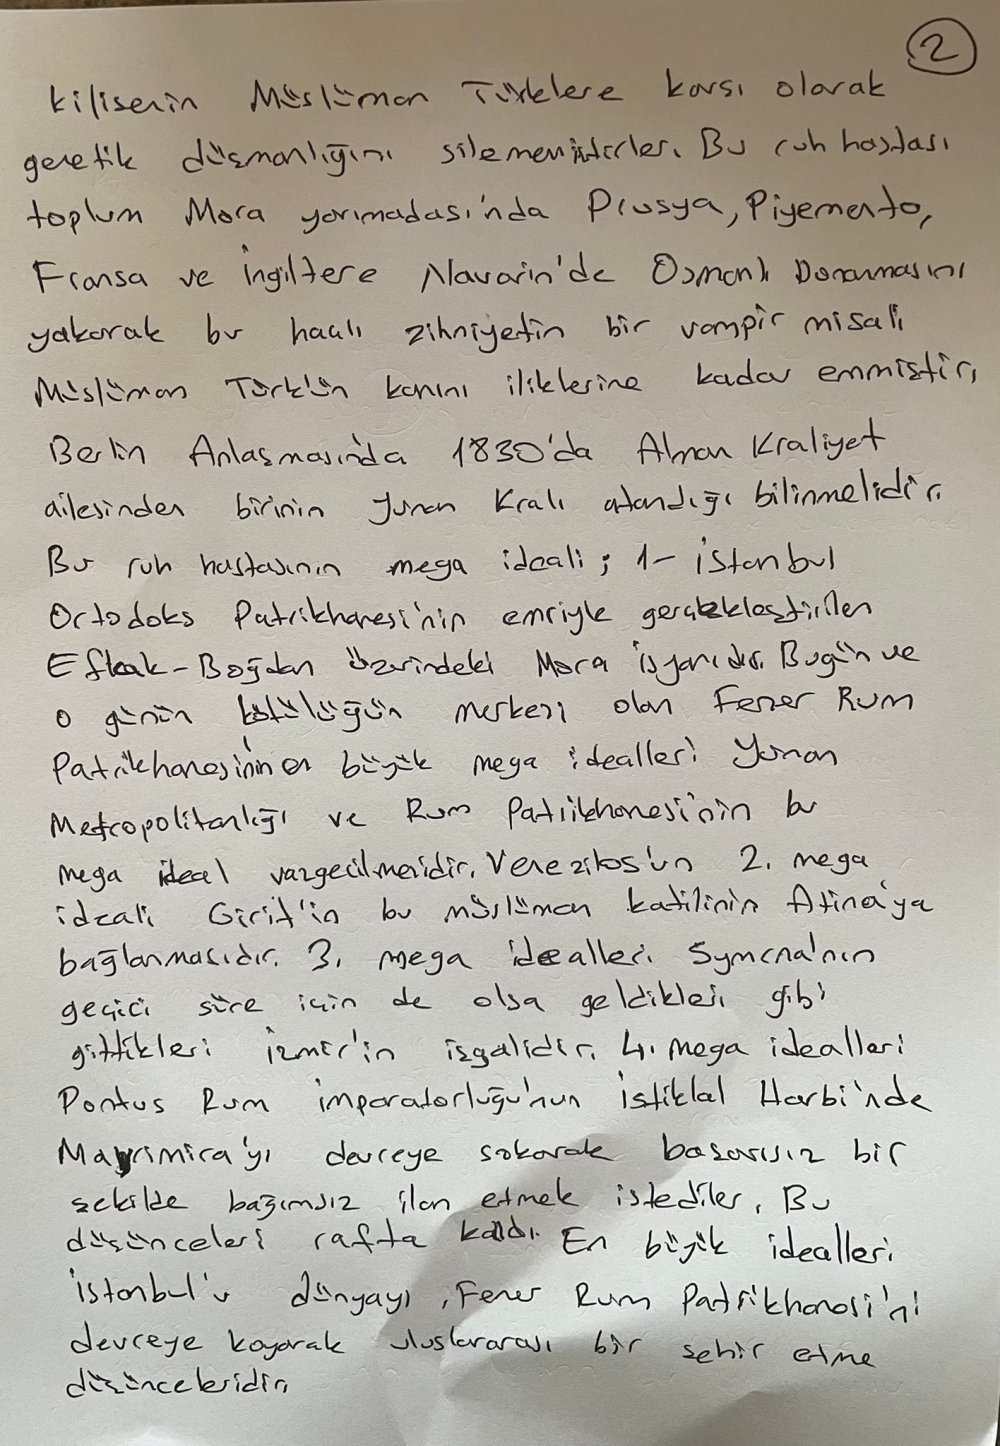 2
kilisenin Müslüman Türklere karşı olarak
genetik düşmanlığını silememişlerdir. Bu ruh hastası
toplum Mora yarımadası'nda Prusya, Piyemento,
Fransa ve İngiltere Navarin'de Osmanlı Donanmasını
yakarak bu haçlı zihniyetin bir vampir misali
Müslüman Türk'ün kanını iliklerine kadar emmiştir.
Berlin Anlaşmasında 1830'da Alman Kraliyet
ailesinden birinin Yunan Kralı atandığı bilinmelidir.
Bu ruh hastasının mega ideali; 1- İstanbul
Ortodoks Patrikhanesi'nin emriyle gerçekleştirilen
Eflak-Boğdan üzerindeki Mora isyanıdır. Bugün ve
o günün kötülüğün merkezi olan Fener Rum
Patrikhanesinin en büyük mega idealleri Yunan
Metropolitanlığı ve Rum Patrikhanesi'nin bu
mega ideal vazgeçilmezidir. Venezilos'un 2. mega
ideali Girit'in bu müslüman katilinin Atina'ya
bağlanmasıdır. 3. mega idealleri Symrna'nın
geçici süre için de olsa geldikleri gibi
gittikleri İzmir'in işgalidir. 4. mega idealleri
Pontus Rum İmparatorluğu'nun İstiklal Harbi'nde
Mavrimira'yı devreye sokarak başarısız bir
şekilde bağımsız ilan etmek istediler. Bu
düşünceleri rafta kaldı. En büyük idealleri
İstanbul'u dünyayı, Fener Rum Patrikhanesi'ni
devreye koyarak uluslararası bir şehir etme
düşünceleridir.